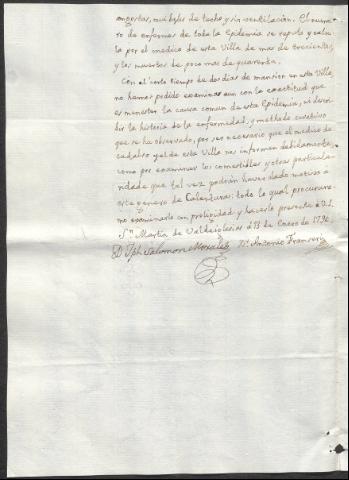 angostas, mui bajas de techo y sin ventilacion. El nume-
ro de enfermos de toda la Epidemia se reputa y calcu-
la por el medico de esta Villa de mas de trecientos,
y los muertos de poco mas de quarenta.
Con el corto tiempo de dos dias de mansion en esta Villa,
no hemos podido examinar aun con la exactitud que
es menester la causa comun de esta Epidemia, ni descri-
bir la historia de la enfermedad, y methodo curativo
que se ha observado, por ser necesario que el medico de
Cadalso y el de esta Villa nos informen debidamente,
como por examinar los comestibles y otras particula-
ridades que tal vez podrán haver dado motivo a
este genero de Calenturas: todo lo qual procurare-
mos examinarlo con prolixidad y hacerlo presente á V.S.
Sn. Martin de Valdeiglesias á 13 de Enero de 1790.
D. Jph Salomon Morales Dn. Antonio Franseri